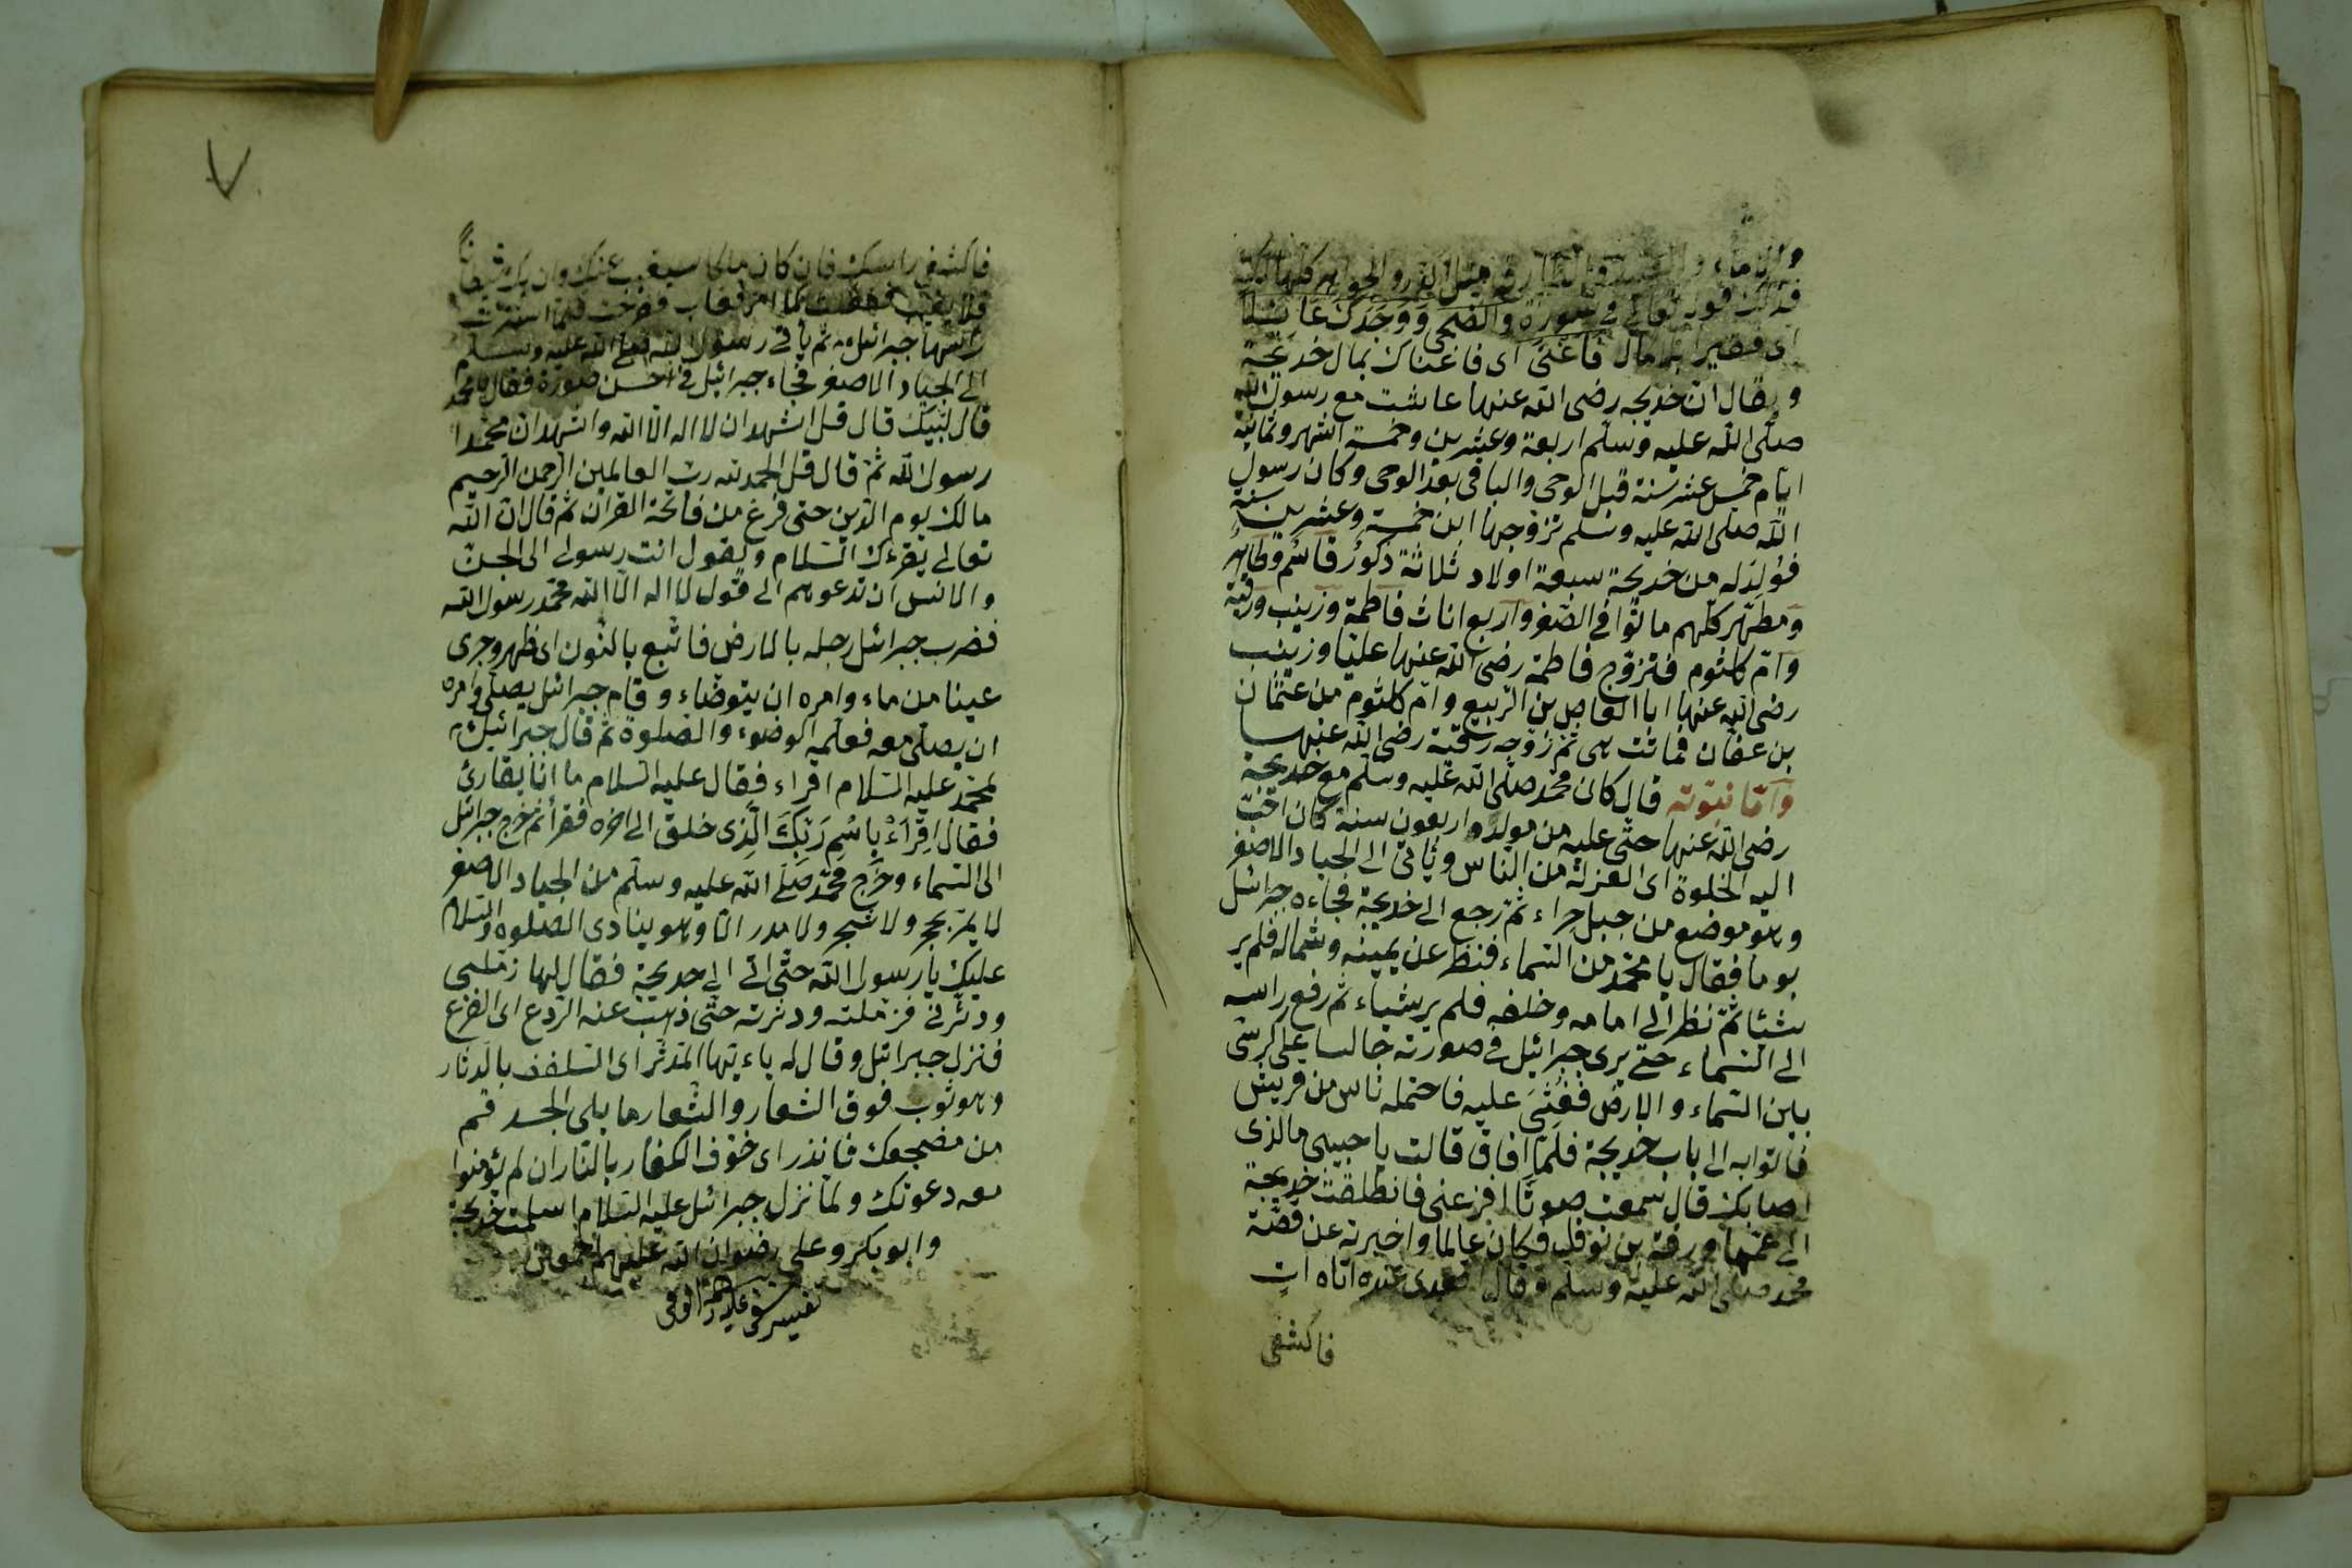 والاماء و مثل الدر والجواهر كلها لك
فذلك قوله تعالى فى سورة والضحى ووجدك عائلا
اى فقيرا بلا مال فاغنى اى فاغناك بمال خديجة
ويقال ان خديجه رضى الله عنها عاشت مع رسول الله
صلى الله عليه وسلم اربعة وعشرين وخمسة اشهر وثمانية
ايام خمس عشر سنة قبل الوحى والباقى بعد الوحى وكان رسول
الله صلى الله عليه وسلم تزوجها ابن خمسة وعشرين سنة
فولد له من خديجة سبعة اولاد ثلاثة ذكور قاسم وطاهر
ومطهر كلهم ماتوا فى الصغر واربع اناث فاطمة وزينب ورقية
وام كلثوم فتزوج فاطمة رضى الله عنها عليا وزينب
رضى الله عنها ابا العاص بن الربيع وام كلثوم من عثمان
بن عفان فماتت هى ثم زوجه رقية رضى الله عنها
واما نبوته قال كان محمد صلى الله عليه وسلم مع خديجة
رضى الله عنها حتى عليه من مولده اربعون سنة كان احب
اليه الخلوة اى العزلة من الناس وياتى الى الجياد الاصغر
وهو موضع من جبل حراء ثم رجع الى خديجة فجاءه جبرائيل
يوما فقال يا محمد من السماء فنظر عن يمينه وشماله فلم ير
شيئا ثم نظر الى امامه وخلفه فلم ير شياء ثم رفع راسه
الى السماء حتى يرى جبرائيل فى صورته جالسا على كرسى
بين السماء والارض فغشى عليه فاحتمله ناس من قريش
فاتوا به الى باب خديجة فلما افاق قالت يا حبيبى ما الذى
اصابك قال سمعت صوتا افزعنى فانطلقت خديجة
الى عمها ورقة بن نوفل فكان عالما واخبرته عن قصة
محمد صلى الله عليه وسلم وقال اقعدى عنده اتاه ات
فاكشفى
٧
فاكشفى راسك فان كان ملكا سيغيب عنك وان يك شيطانا
فلا يغيب ففعلت كما امر فغاب ففرحت فلما استترت
راسها جبرائل ثم ياتى رسول الله صلى الله عليه وسلم
الى الجياد الاصغر فجاء جبرائيل فى احسن صورة فقال يا محمد
قال لبيك قال قل اشهد ان لا اله الا الله واشهد ان محمدا
رسول الله ثم قال قل الحمد لله رب العالمين الرحمن الرحيم
مالك يوم الدين حتى فرغ من فاتحة القران ثم قال ان الله
تعالى يقرءك السلام ويقول انت رسولى الى الجن
والانس ان تدعوهم الى قول لا اله الا الله محمد رسول الله
فضرب جبرائل رجله بالارض فانبع بالنون اى ظهر وجرى
عينا من ماء وامره ان يتوضاء وقام جبرائل يصلى وامره
ان يصلى معه فعلمه الوضوء والصلوة ثم قال جبرائيل
لمحمد عليه السلام اقراء فقال عليه السلام ما انا بقارئ
فقال اقراء باسم ربك الذى خلق الى اخره فقرأ ثم خرج جبرائل
الى السماء وخرج محمد صلى الله عليه وسلم من الجياد الاصغر
لا يمر بحجر ولا شجر ولا مدر الا وهو ينادى الصلوة والسلام
عليك يا رسول الله حتى اتى الى خديجة فقال لها زملينى
ودثرنى فزملته ودثرته حتى ذهب عنه الروع اى الفزع
فنزل جبرائل وقال له ياءيها المدثر اى التلفف بالدثار
وهو ثوب فوق الشعار والشعار ما يلى الجسد قم
من مضجعك فانذر اى خوف الكفار بالنار ان لم يؤمنوا
معه دعوتك ولما نزل جبرائل عليه السلام اسلمت خديجة
وابو بكر وعلى رضوان الله عليهم اجمعين
تفسير